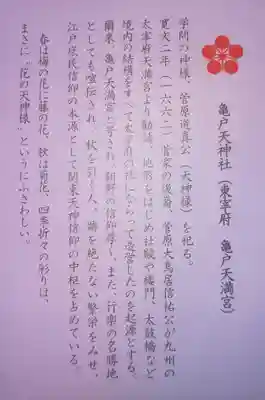 亀戸天神社（東宰府　亀戸天満宮）
学問の神様、菅原道真公（天神様）を祀る。
寛文二年（一六六二）、菅家の後裔、菅原大鳥居信祐公が九州の
太宰府天満宮より勧請、地形をはじめ社殿や楼門、太鼓橋など
境内の結構をすべて太宰府の社にならって造営したのを起源とする。
爾来、亀戸天満宮と号され、朝野の信仰篤く、また、行楽の名勝地
としても喧伝され、杖を引く人、跡を絶たない繁栄をみせ、
江戸庶民信仰の本源として関東天神信仰の中枢を占めている。
春は梅の花に藤の花、秋は菊花、四季折々の彩りは、
まさに“花の天神様”というにふさわしい。